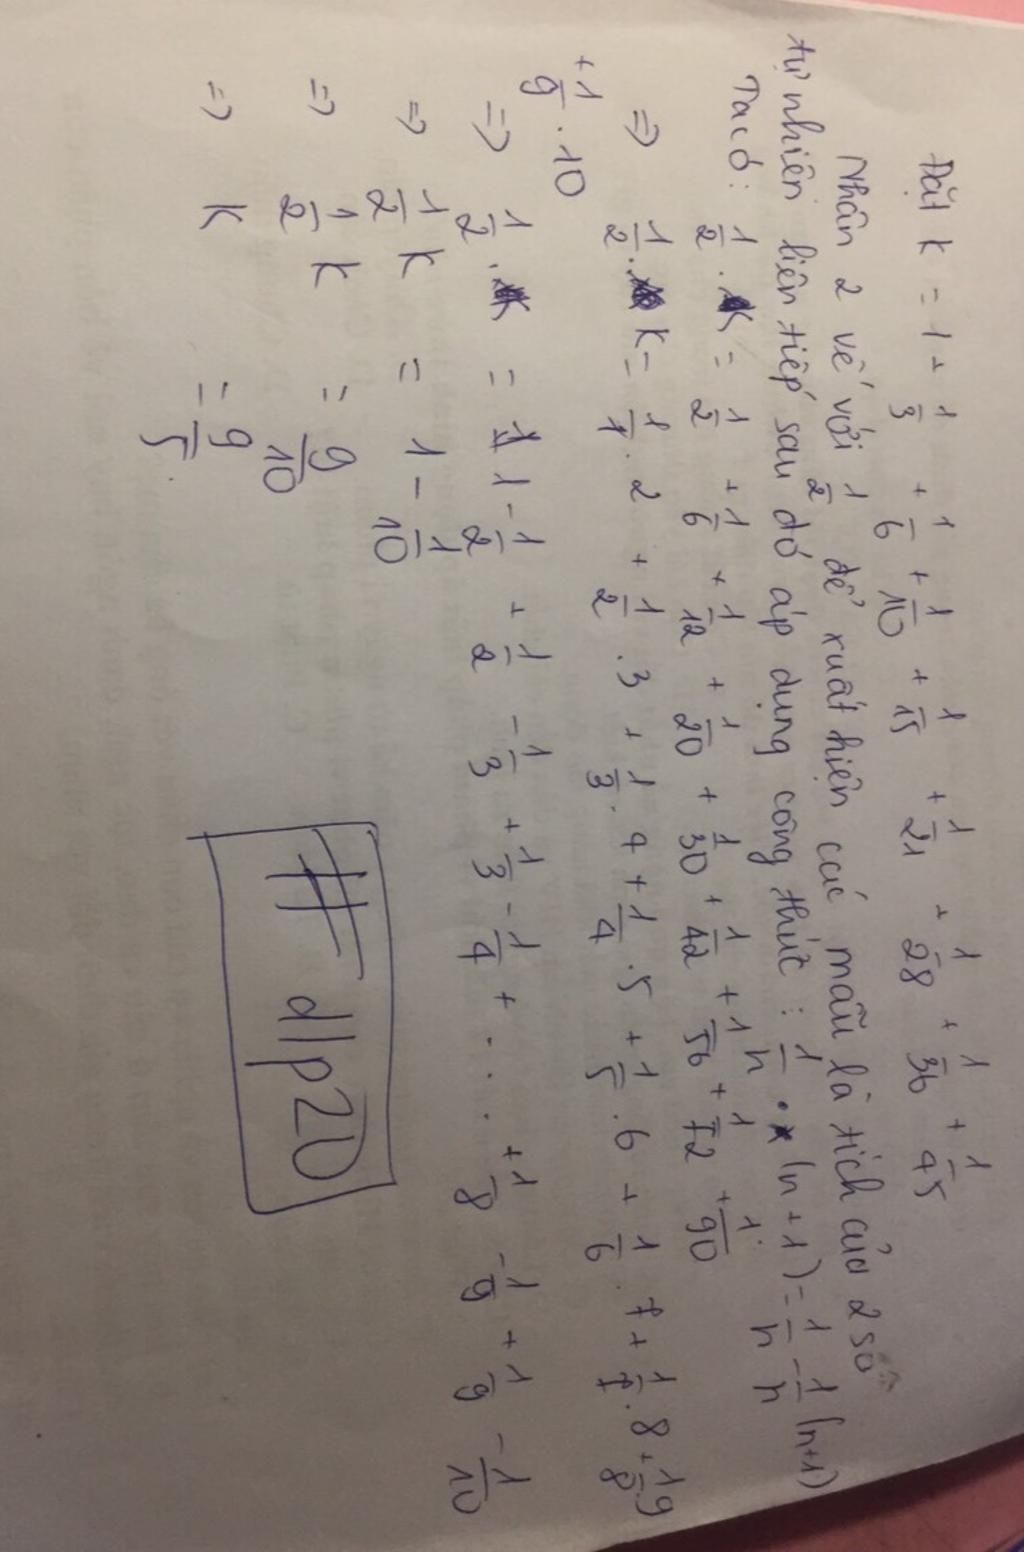 Đặt K = 1 + 1/3 + 1/6 + 1/10 + 1/15 + 1/21 + 1/28 + 1/36 + 1/45
Nhân 2 vế với 1/2 để xuất hiện các mẫu là tích của 2 số
tự nhiên liên tiếp sau đó áp dụng công thức : 1/n . (n+1) = 1/n - 1/n (n+1)
Ta có : 1/2 . K = 1/2 + 1/6 + 1/12 + 1/20 + 1/30 + 1/42 + 1/56 + 1/72 + 1/90
=> 1/2 . K = 1/1 . 2 + 1/2 . 3 + 1/3 . 4 + 1/4 . 5 + 1/5 . 6 + 1/6 . 7 + 1/7 . 8 + 1/8 . 9
+ 1/9 . 10
=> 1/2 . K = 1 - 1/2 + 1/2 - 1/3 + 1/3 - 1/4 + .... + 1/8 - 1/9 + 1/9 - 1/10
=> 1/2 K = 1 - 1/10
=> 1/2 K = 9/10
=> K = 9/5 .
# dlp20